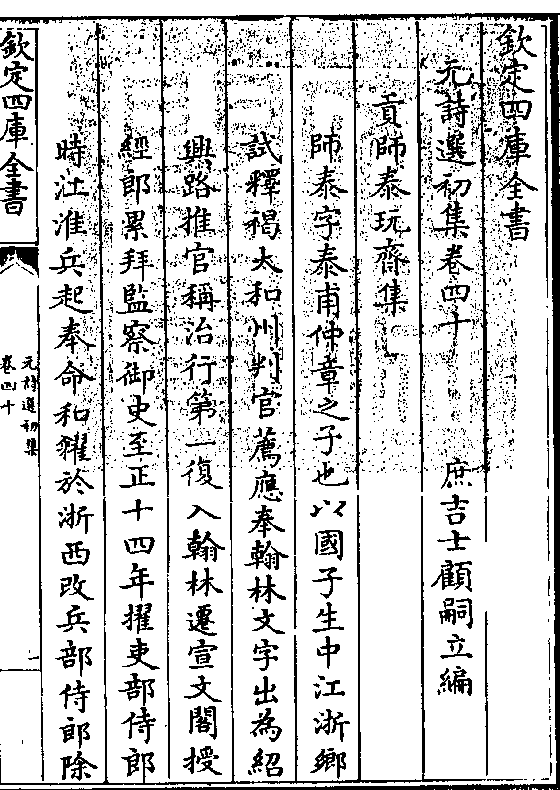 欽定四庫全書
元詩選初集卷四十　庶吉士顧嗣立編
貢師泰玩齋集
師泰字泰甫仲章之子也以國子生中江浙鄉
試釋褐太和州判官薦應奉翰林文字出為紹
興路推官稱治行第一復入翰林遷宣文閣授
經郎累拜監察御史至正十四年擢吏部侍郎
時江淮兵起奉命和糴於浙西改兵部侍郎除
欽定四庫全書
元詩選初集
卷四十
一